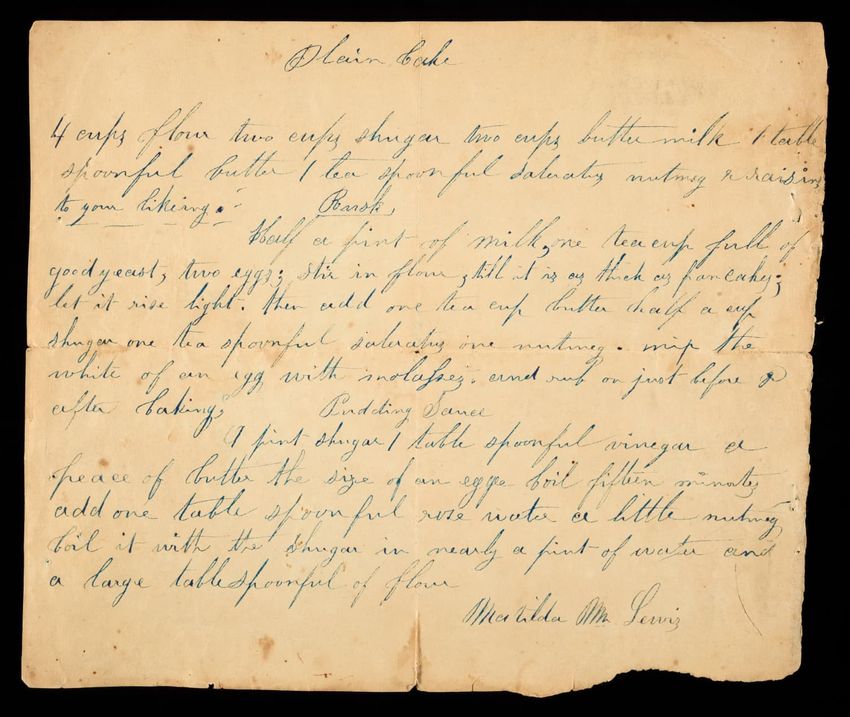 Plain Cake
4 cups flour two cups shugar two cups butter milk 1 table
spoonful butter 1 tea spoonful saleratus nutmeg & raisins
to your likeing.
Rusk,
Half a pint of milk, one teacup full of
good yeast, two eggs; stir in flour, till it is as thick as pancakes;
let it rise light. then add one tea cup butter half a cup
shugar one tea spoonful saleratus one nutmeg. mix the
white of an egg with molasses. and rub on just before &
after baking;
Pudding Sauce
A pint shugar 1 table spoonful vinegar a
peace of butter the size of an egg boil fifteen minutes
add one table spoonful rose water a little nutmeg
boil it with the shugar in nearly a pint of water and
a large tablespoonful of flour
Matilda M Lewis